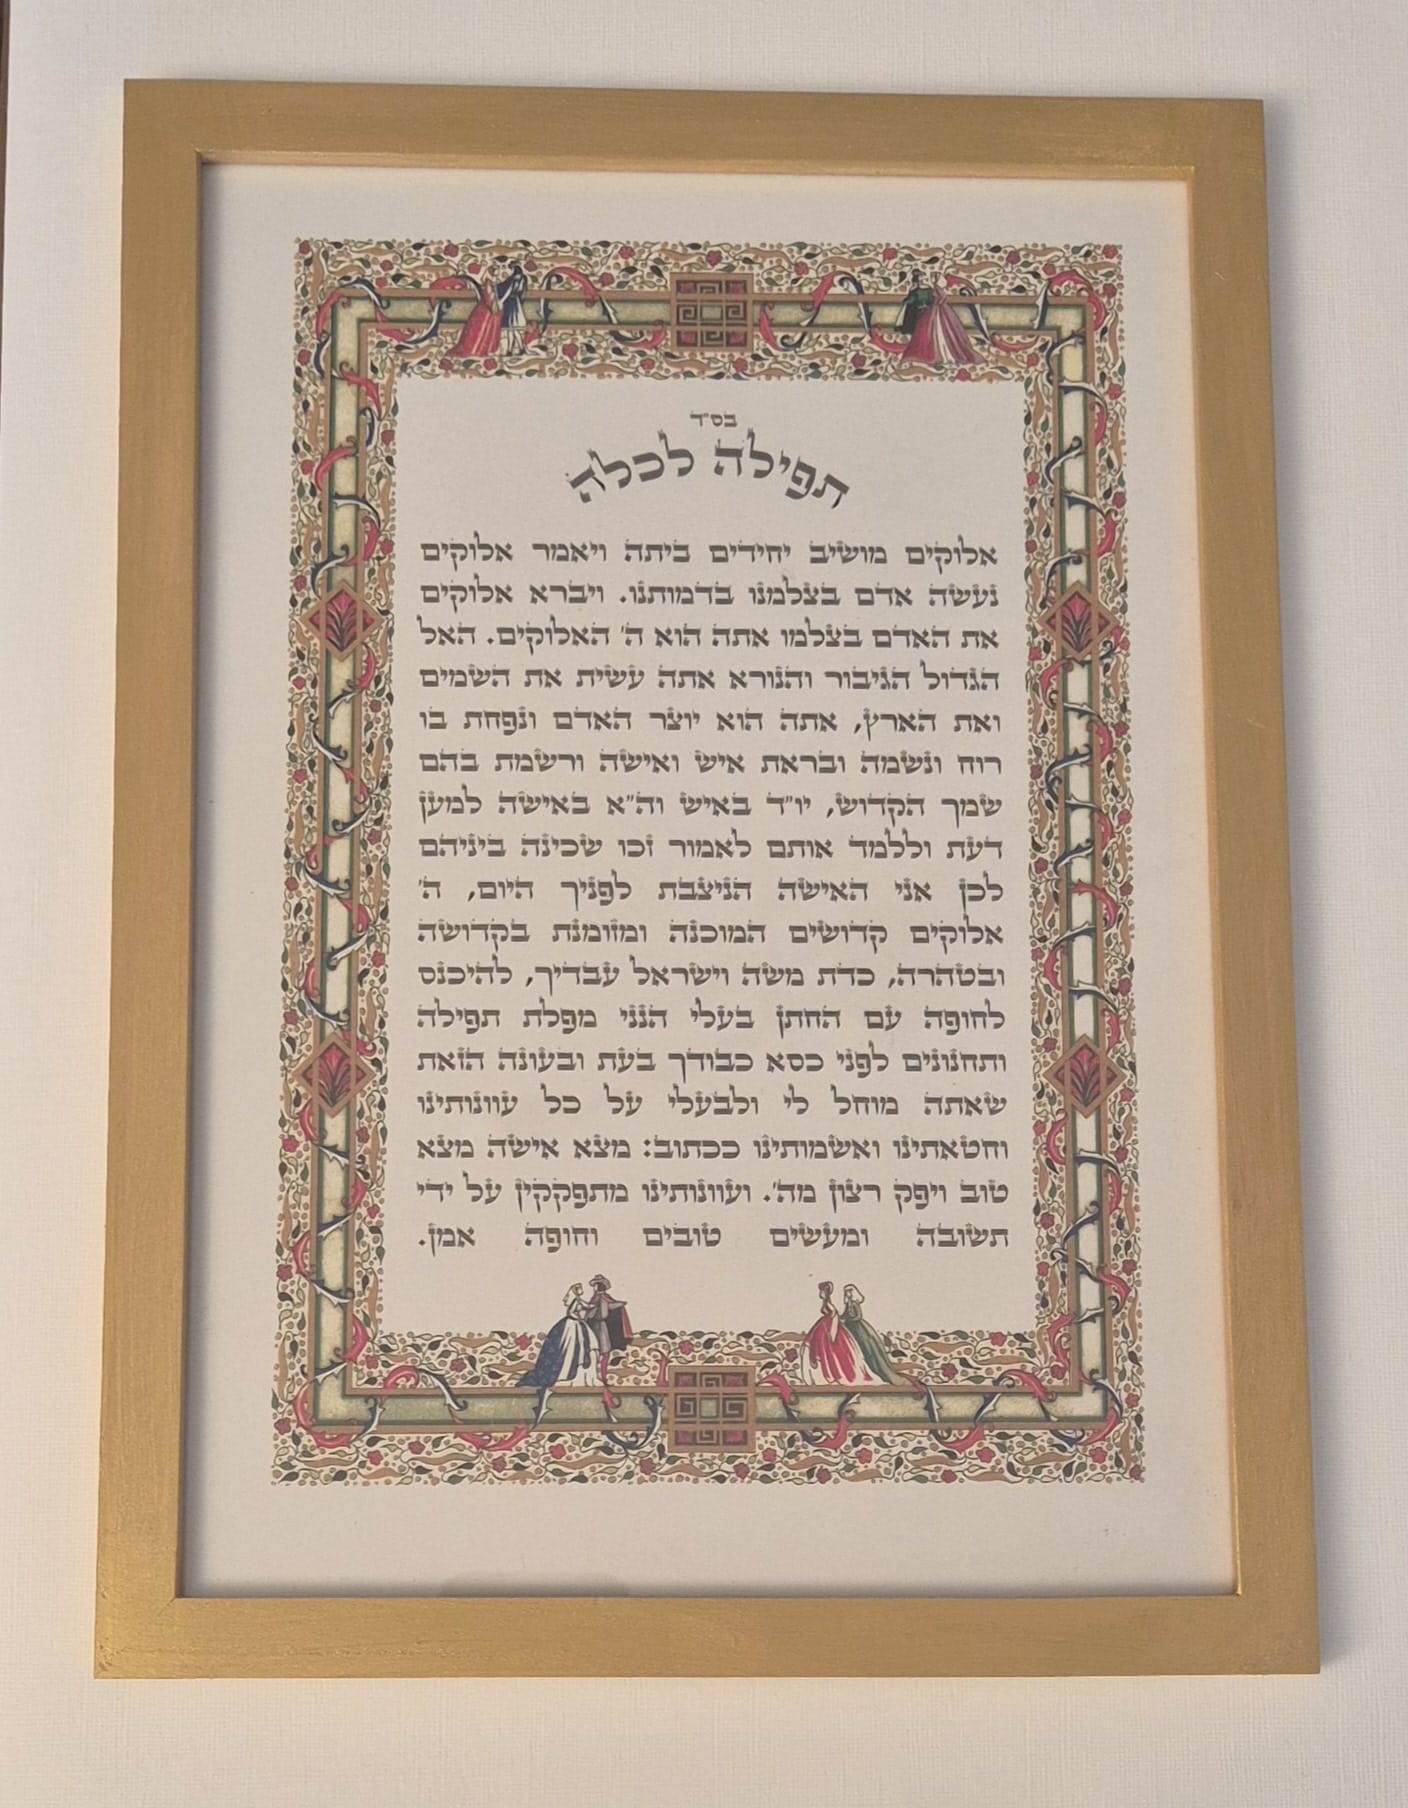 בס״ד
תפילה לכלה
אלוקים מושיב יחידים ביתה ויאמר אלוקים
נעשה אדם בצלמנו בדמותנו. ויברא אלוקים
את האדם בצלמו אתה הוא ה׳ האלוקים. האל
הגדול הגיבור והנורא אתה עשית את השמים
ואת הארץ, אתה הוא יוצר האדם ונפחת בו
רוח ונשמה ובראת איש ואישה ורשמת בהם
שמך הקדוש, יו״ד באיש וה״א באישה למען
דעת וללמד אותם לאמור זכו שכינה ביניהם
לכן אני האישה הניצבת לפניך היום, ה׳
אלוקים קדושים המוכנה ומזומנת בקדושה
ובטהרה, כדת משה וישראל עבדיך, להיכנס
לחופה עם החתן בעלי הנני מפלת תפילה
ותחנונים לפני כסא כבודך בעת ובעונה הזאת
שאתה מוחל לי ולבעלי על כל עוונותינו
וחטאתינו ואשמותינו ככתוב: מצא אישה מצא
טוב ויפק רצון מה׳. ועוונותינו מתפקקין על ידי
תשובה ומעשים טובים וחופה אמן.